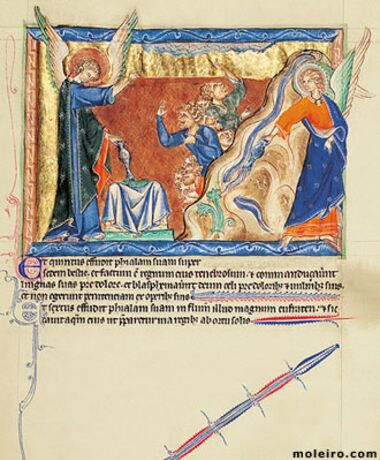 Et quintus effudit phialam suam super
sedem bestie. et factum ē regnum eius tenebrosum. et conmanducauerūt
linguas suas pre dolore. et blasphemauerūt deum celi pre doloribꝫ et uulneribꝫ suis.
et non egerunt penitenciam ex operibꝫ suis
Et sextus effudit phialam suam in flum illud magnum eufraten. et sic
cauit aqm eius ut ꝑpararetur uia regibꝫ ab ortu solis.
moleiro.com